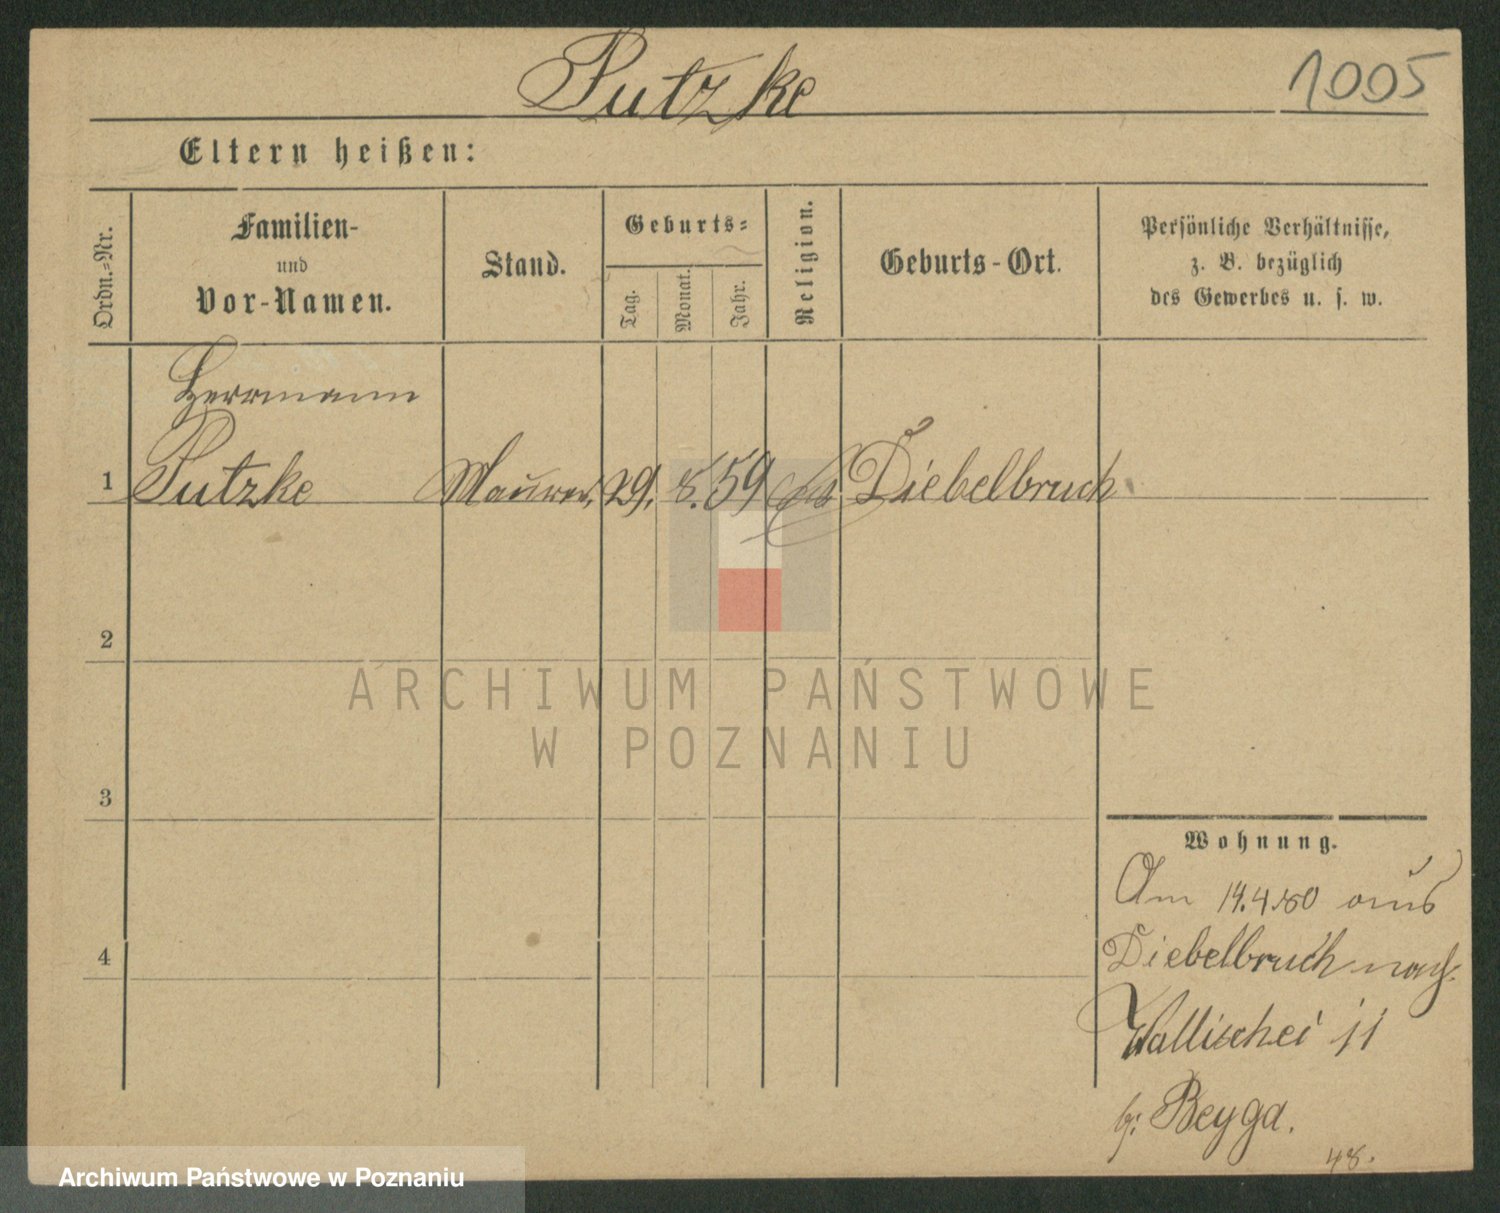 Putzke
1005
Eltern heißen:
Ordn.-Nr.
Familien-
und
Vor-Namen.
Stand.
Geburts-
Tag.
Monat.
Jahr.
Religion.
Geburts-Ort.
Persönliche Verhältnisse,
z. B. bezüglich
des Gewerbes u. s. w.
Herrmann
1 Putzke Maurer, 29. 8. 59 Diebelbruch
2
3
4
Wohnung.
Am 14.4.80 aus
Diebelbruch nach
Wallischei 11
b: Beyga.
48.
ARCHIWUM PAŃSTWOWE
W POZNANIU
Archiwum Państwowe w Poznaniu